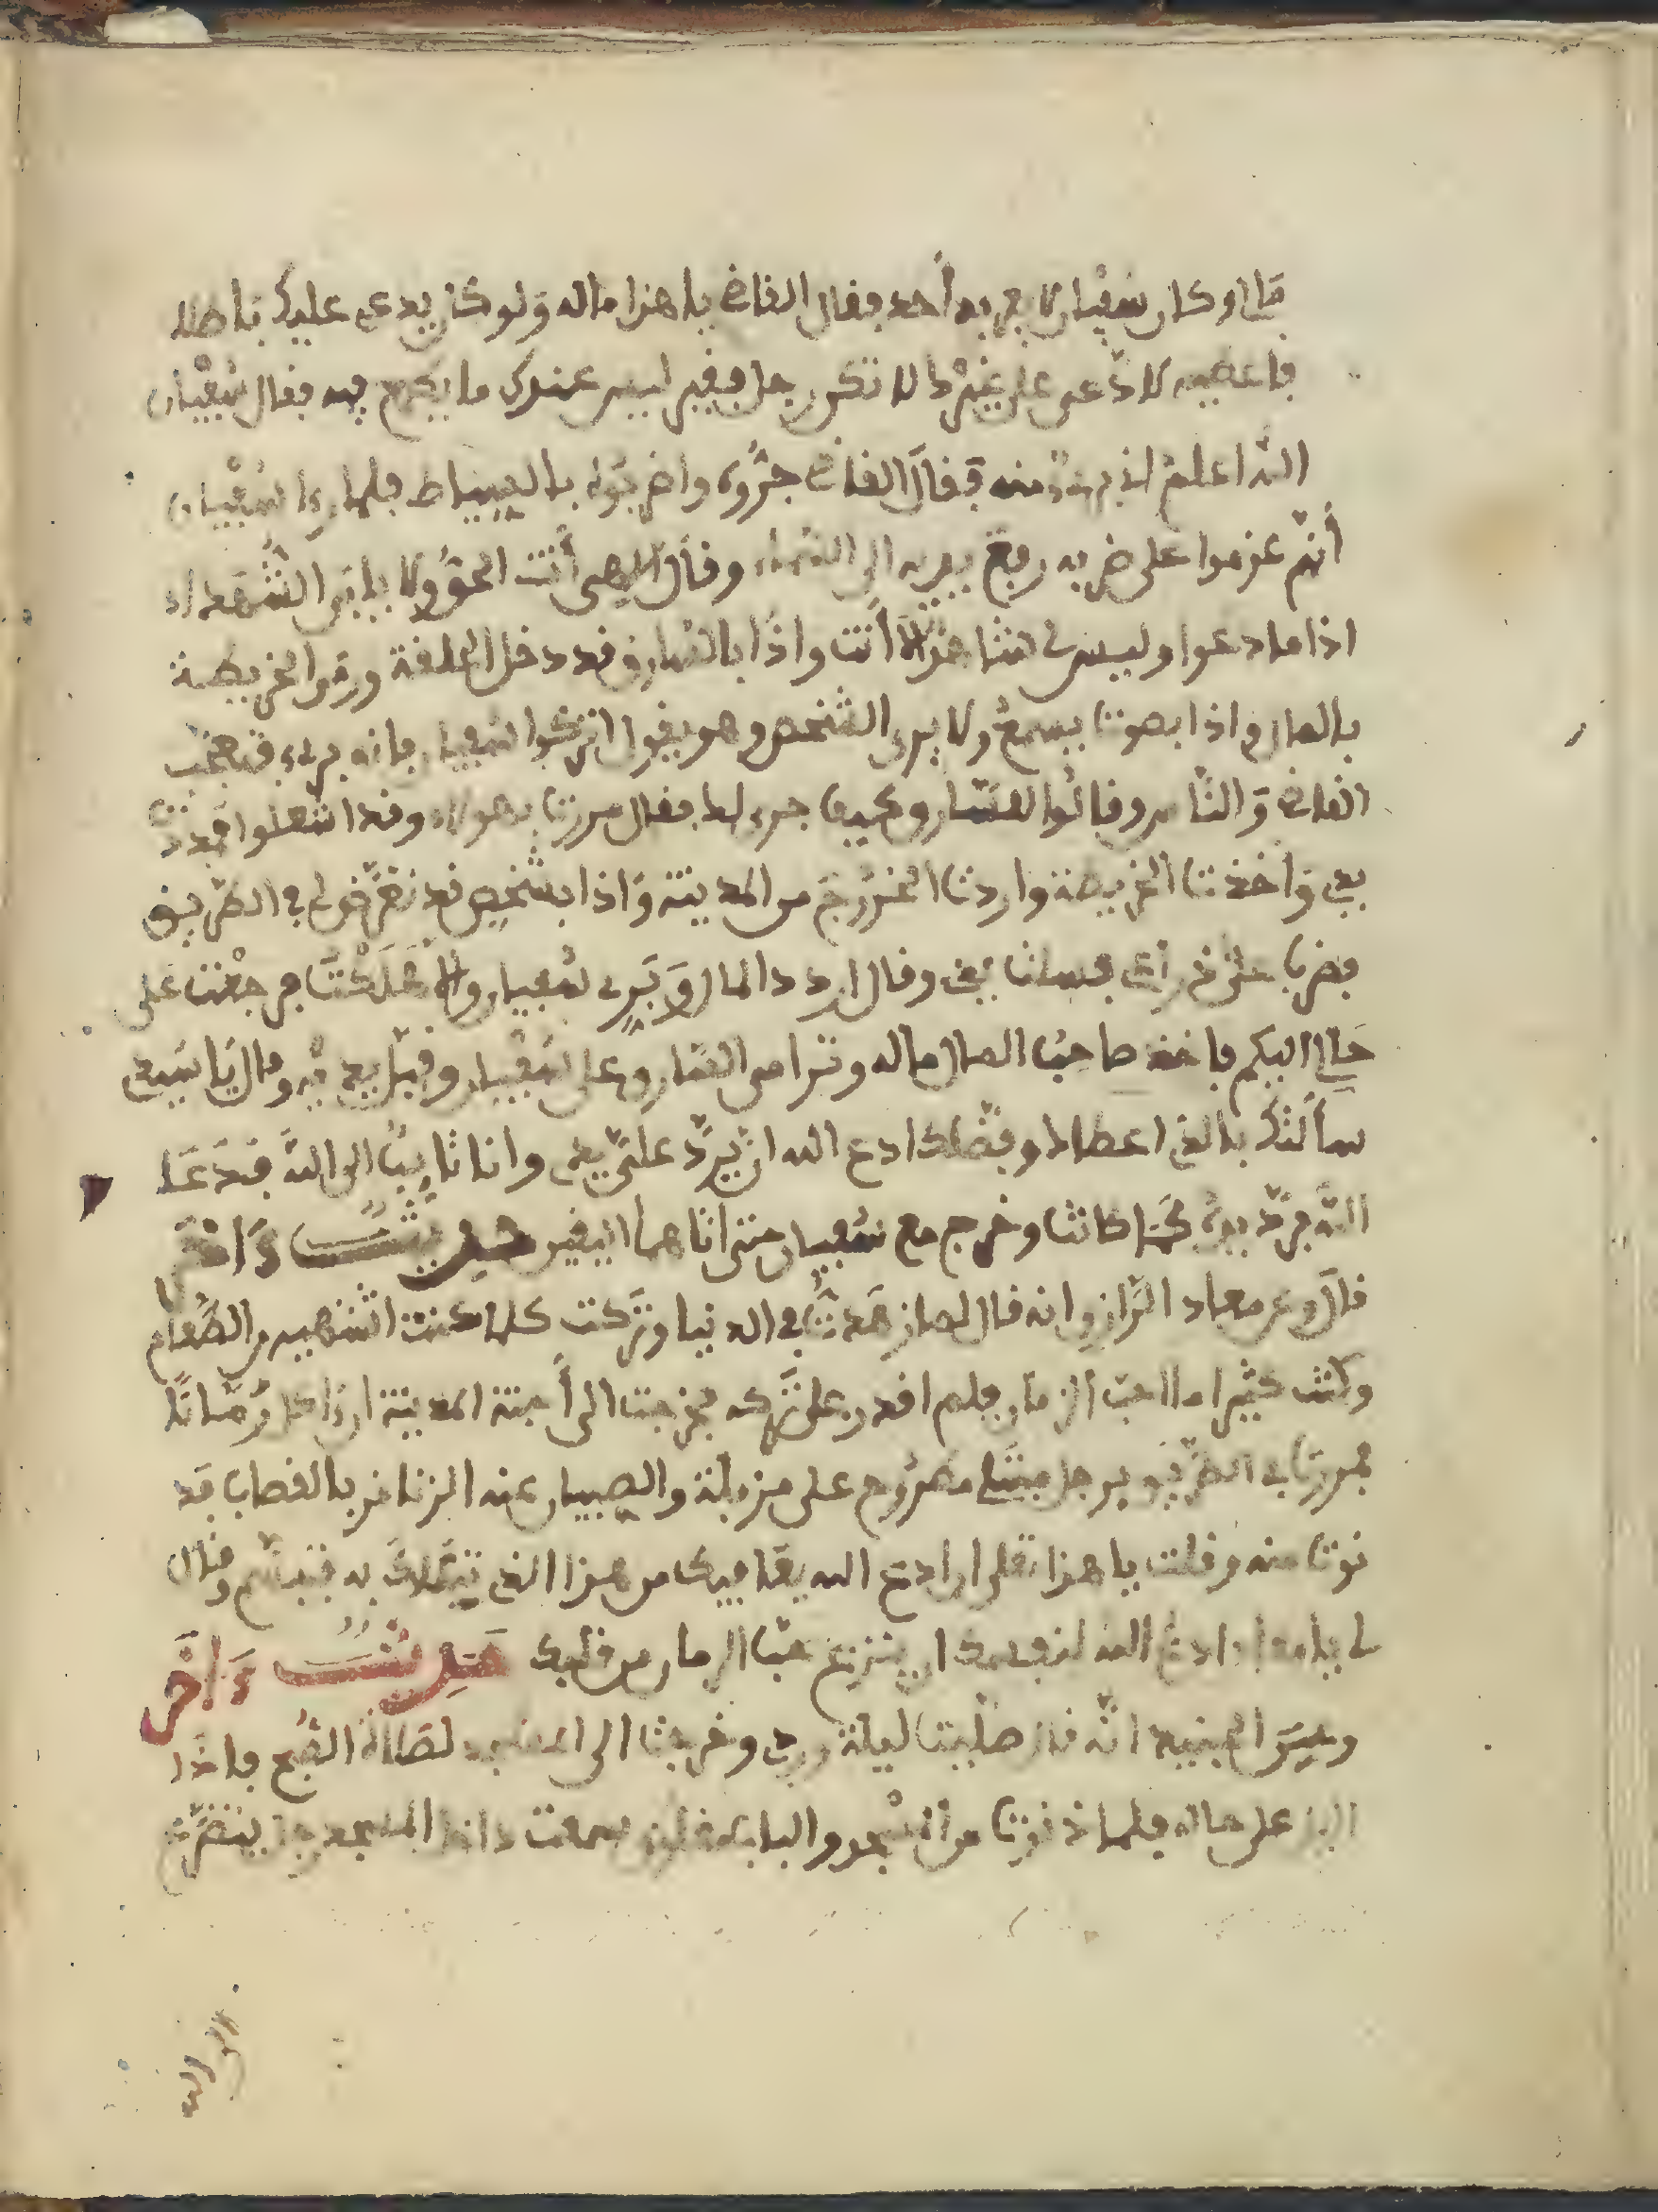 قال وكان سفيان لا يعرفه أحد فقال القاضي يا هذا ماله ولو كان يدعي عليك باطلا
فاعطيه لادعى على غيرك لا نك رجل فقير ليس عندك ما يطمع فيه فقال سفيان
الله اعلم اني بريء منه فقال القاضي جروه واضربوه بالسياط فلما رءا سفيان
أنهم عزموا على ضربه رفع بصره الى السماء وقال إلاهي أنت الحق ولا يابى الشهداء
اذا ما دعوا وليس لي هنا هذا إلا أنت واذا بالسارق قد دخل الحلقة ورمى الخريطة
بالمال واذا بصوت يسمع ولا يرى الشخص وهو يقول اتركوا سفيان فانه بريء فتعجب
القاضي والناس وقالوا للسارق كيف جرى لك فقال مررت بهولاء وقد اشتغلوا فمددت
يدي واخذت الخريطة واردت الخروج من المدينة واذا بشخص قد تعرض لي في الطريق
فضربني على رأسي وقال اردد المال وبريء سفيان وإلا هلكت فرجعت على
حالي اليكم فاخذ صاحب المال ماله وترامى السارق على سفيان وقبل يديه وقال يا سيدي
سألتك بالذي اعطاك وفضلك ادع الله ان يرد علي يدي وانا تايب الى الله فدعا
الله فرد يده كما كانت وخرج مع سفيان حتى اتاهما اليقين حديث وءاخر
قال روي عن معاد الرازي انه قال لما زهدت في الدنيا وتركت كلما كنت اشتهيه من الطعام
وكنت كثيرا ما احب الرمان فلم اقدر على تركه فخرجت الى أجنة المدينة اريد اكل رمانا
فمررت في الطريق برجل مبتلي مطروح على مزبلة والصبيان عنه الزنانير بالقصاب فد
نوت منه وقلت يا هذا تقلي ان ادع الله يعافيك من هذا الذي ابتلاك به فتبسم وقال
لي يا معاذ ادع الله لنفسك ان ينزع حب الرمان من قلبك حديث وءاخر
وعن الجنيد انه قال صليت ليلة وردي وخرجت الى المسجد لصلاة الصبح فاذا
اليل على حاله فلما دنوت من المسجد والباب مغلوق سمعت داخل المسجد رجل يتضرع